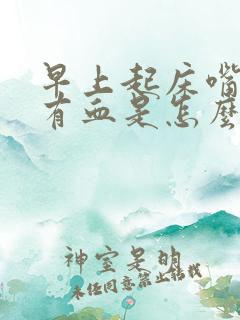 早上起床嘴
有血是怎麼
神室是明
未经同意禁止转载